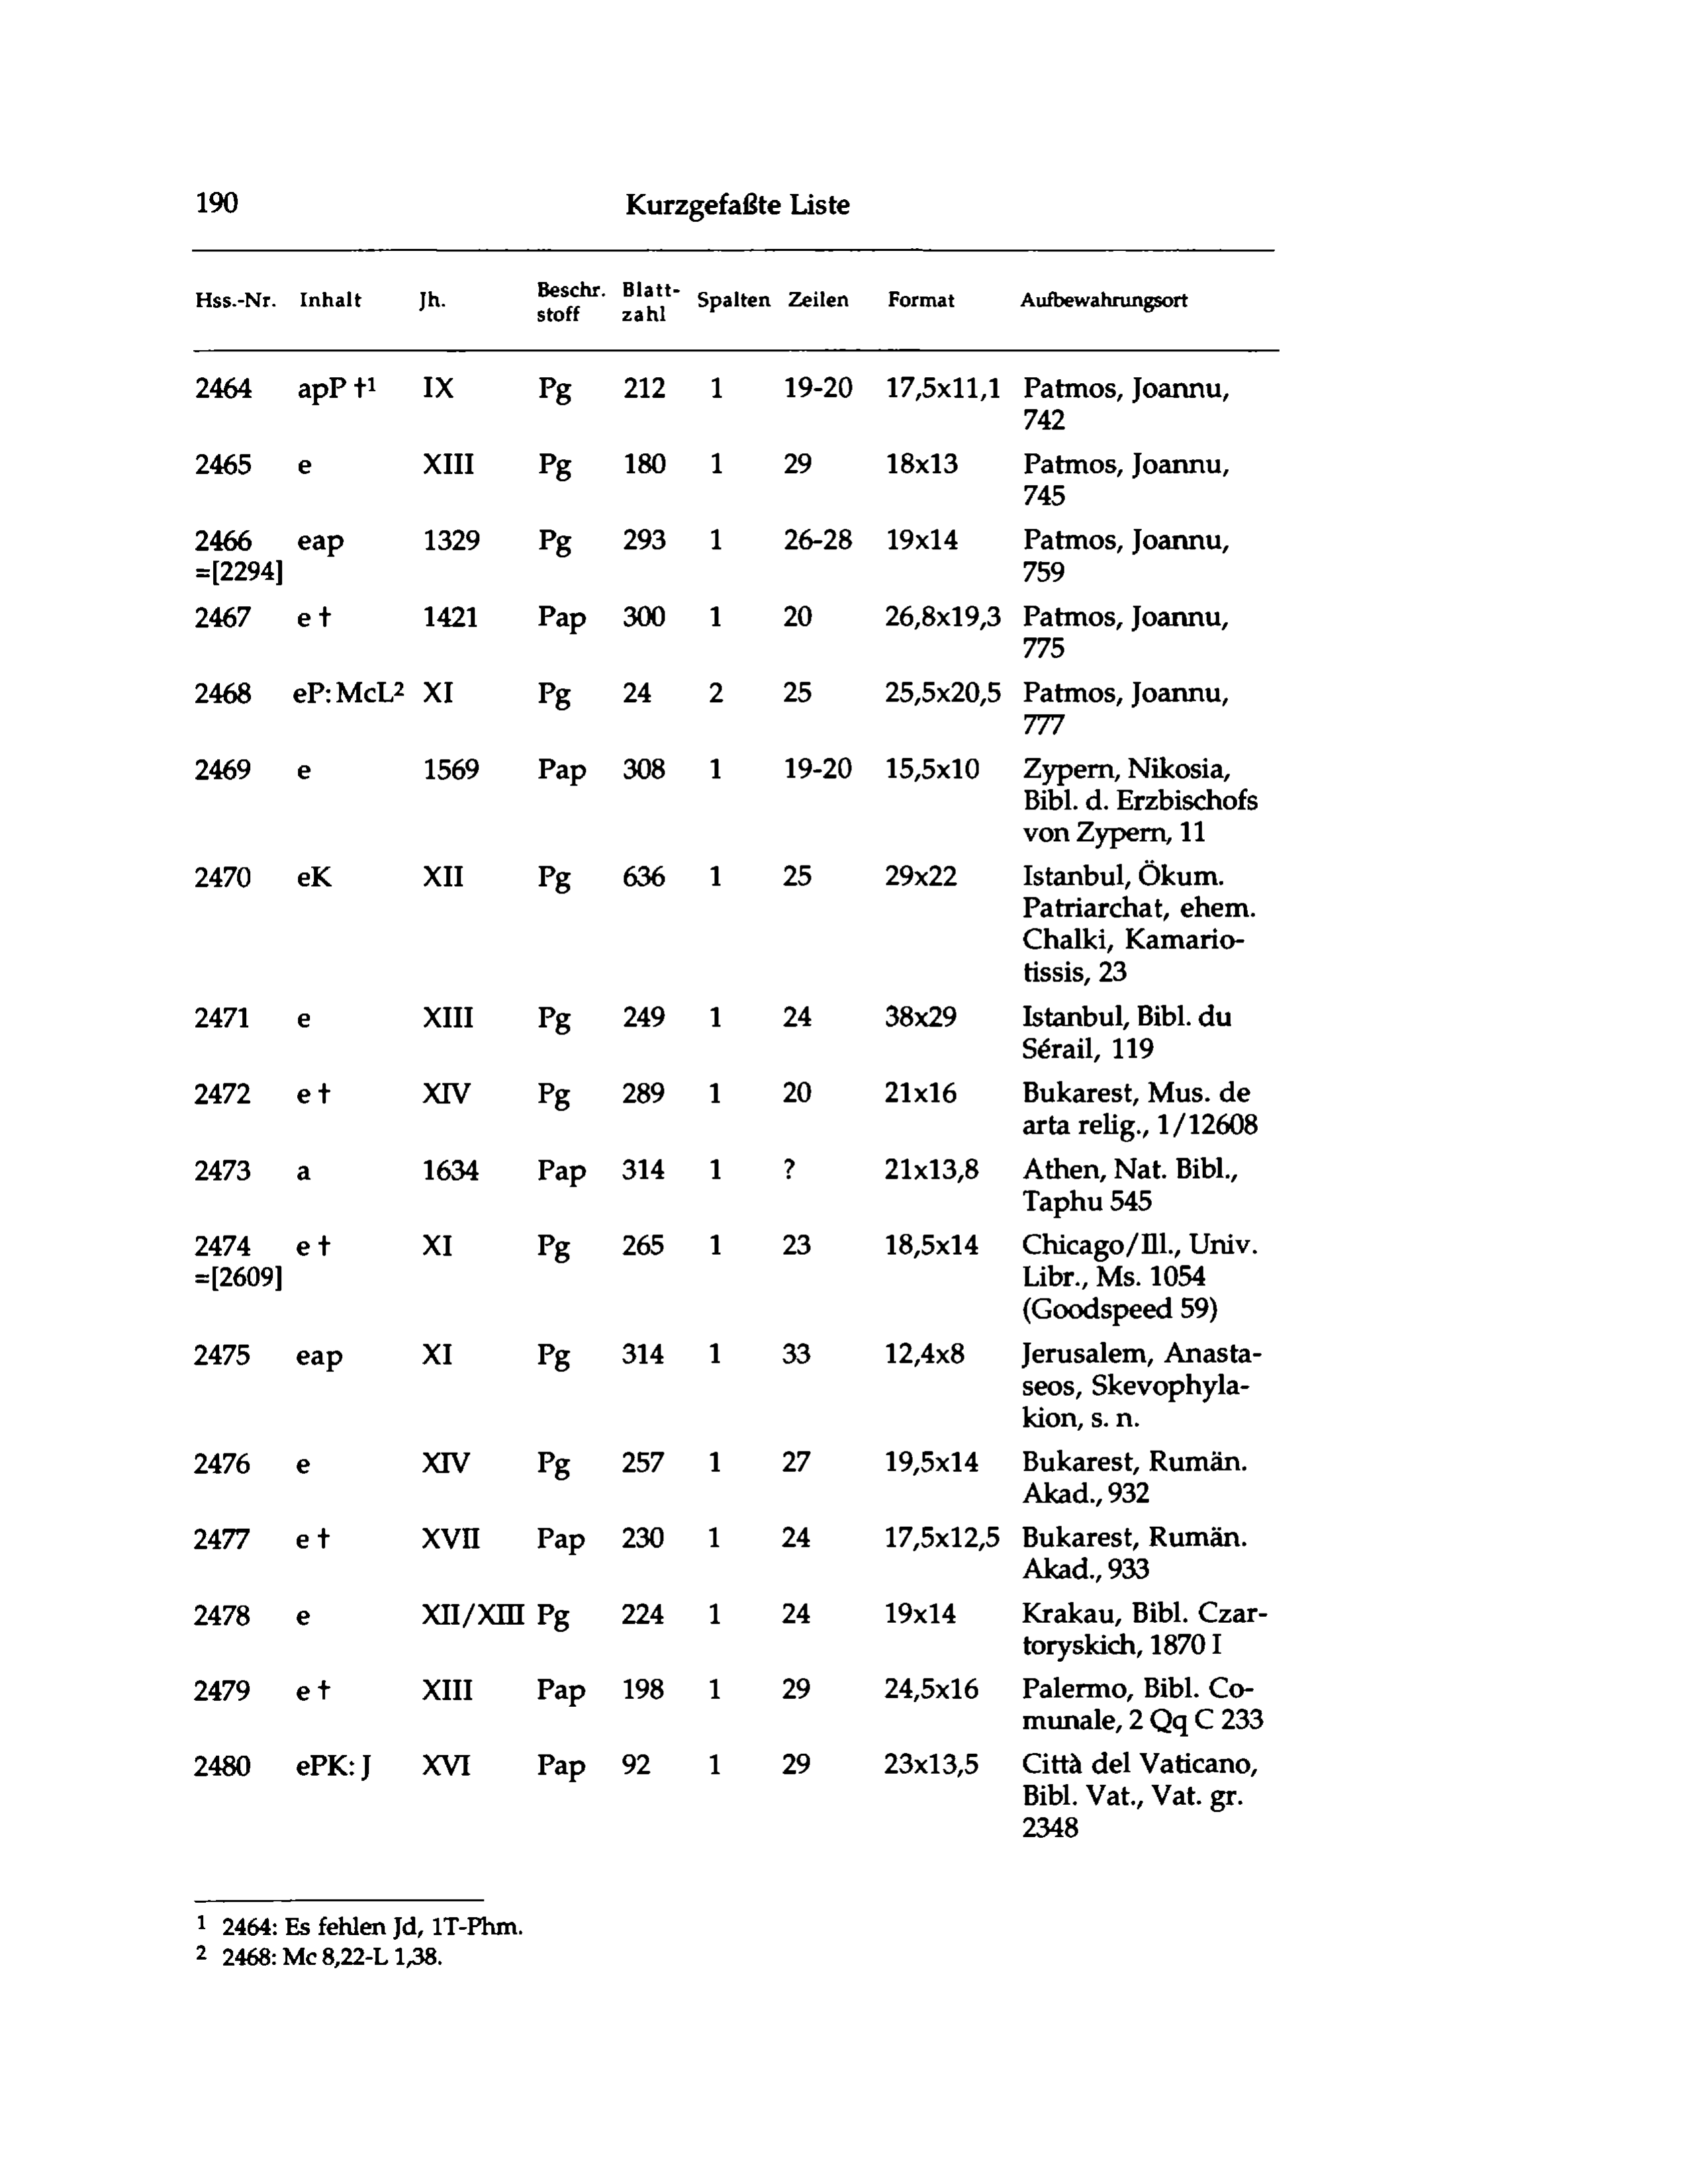 190 Kurzgefaßte Liste
Hss.-Nr. Inhalt Jh. Beschr. stoff Blatt- zahl Spalten Zeilen Format Aufbewahrungsort
2464 apP †¹ IX Pg 212 1 19-20 17,5x11,1 Patmos, Joannu,
742
2465 e XIII Pg 180 1 29 18x13 Patmos, Joannu,
745
2466 eap 1329 Pg 293 1 26-28 19x14 Patmos, Joannu,
=[2294] 759
2467 e † 1421 Pap 300 1 20 26,8x19,3 Patmos, Joannu,
775
2468 eP: McL² XI Pg 24 2 25 25,5x20,5 Patmos, Joannu,
777
2469 e 1569 Pap 308 1 19-20 15,5x10 Zypern, Nikosia,
Bibl. d. Erzbischofs
von Zypern, 11
2470 eK XII Pg 636 1 25 29x22 Istanbul, Ökum.
Patriarchat, ehem.
Chalki, Kamario-
tissis, 23
2471 e XIII Pg 249 1 24 38x29 Istanbul, Bibl. du
Sérail, 119
2472 e † XIV Pg 289 1 20 21x16 Bukarest, Mus. de
arta relig., 1/12608
2473 a 1634 Pap 314 1 ? 21x13,8 Athen, Nat. Bibl.,
Taphu 545
2474 e † XI Pg 265 1 23 18,5x14 Chicago/Ill., Univ.
=[2609] Libr., Ms. 1054
(Goodspeed 59)
2475 eap XI Pg 314 1 33 12,4x8 Jerusalem, Anasta-
seos, Skevophyla-
kion, s. n.
2476 e XIV Pg 257 1 27 19,5x14 Bukarest, Rumän.
Akad., 932
2477 e † XVII Pap 230 1 24 17,5x12,5 Bukarest, Rumän.
Akad., 933
2478 e XII/XIII Pg 224 1 24 19x14 Krakau, Bibl. Czar-
toryskich, 1870 I
2479 e † XIII Pap 198 1 29 24,5x16 Palermo, Bibl. Co-
munale, 2 Qq C 233
2480 ePK: J XVI Pap 92 1 29 23x13,5 Città del Vaticano,
Bibl. Vat., Vat. gr.
2348
¹ 2464: Es fehlen Jd, 1T-Phm.
² 2468: Mc 8,22-L 1,38.